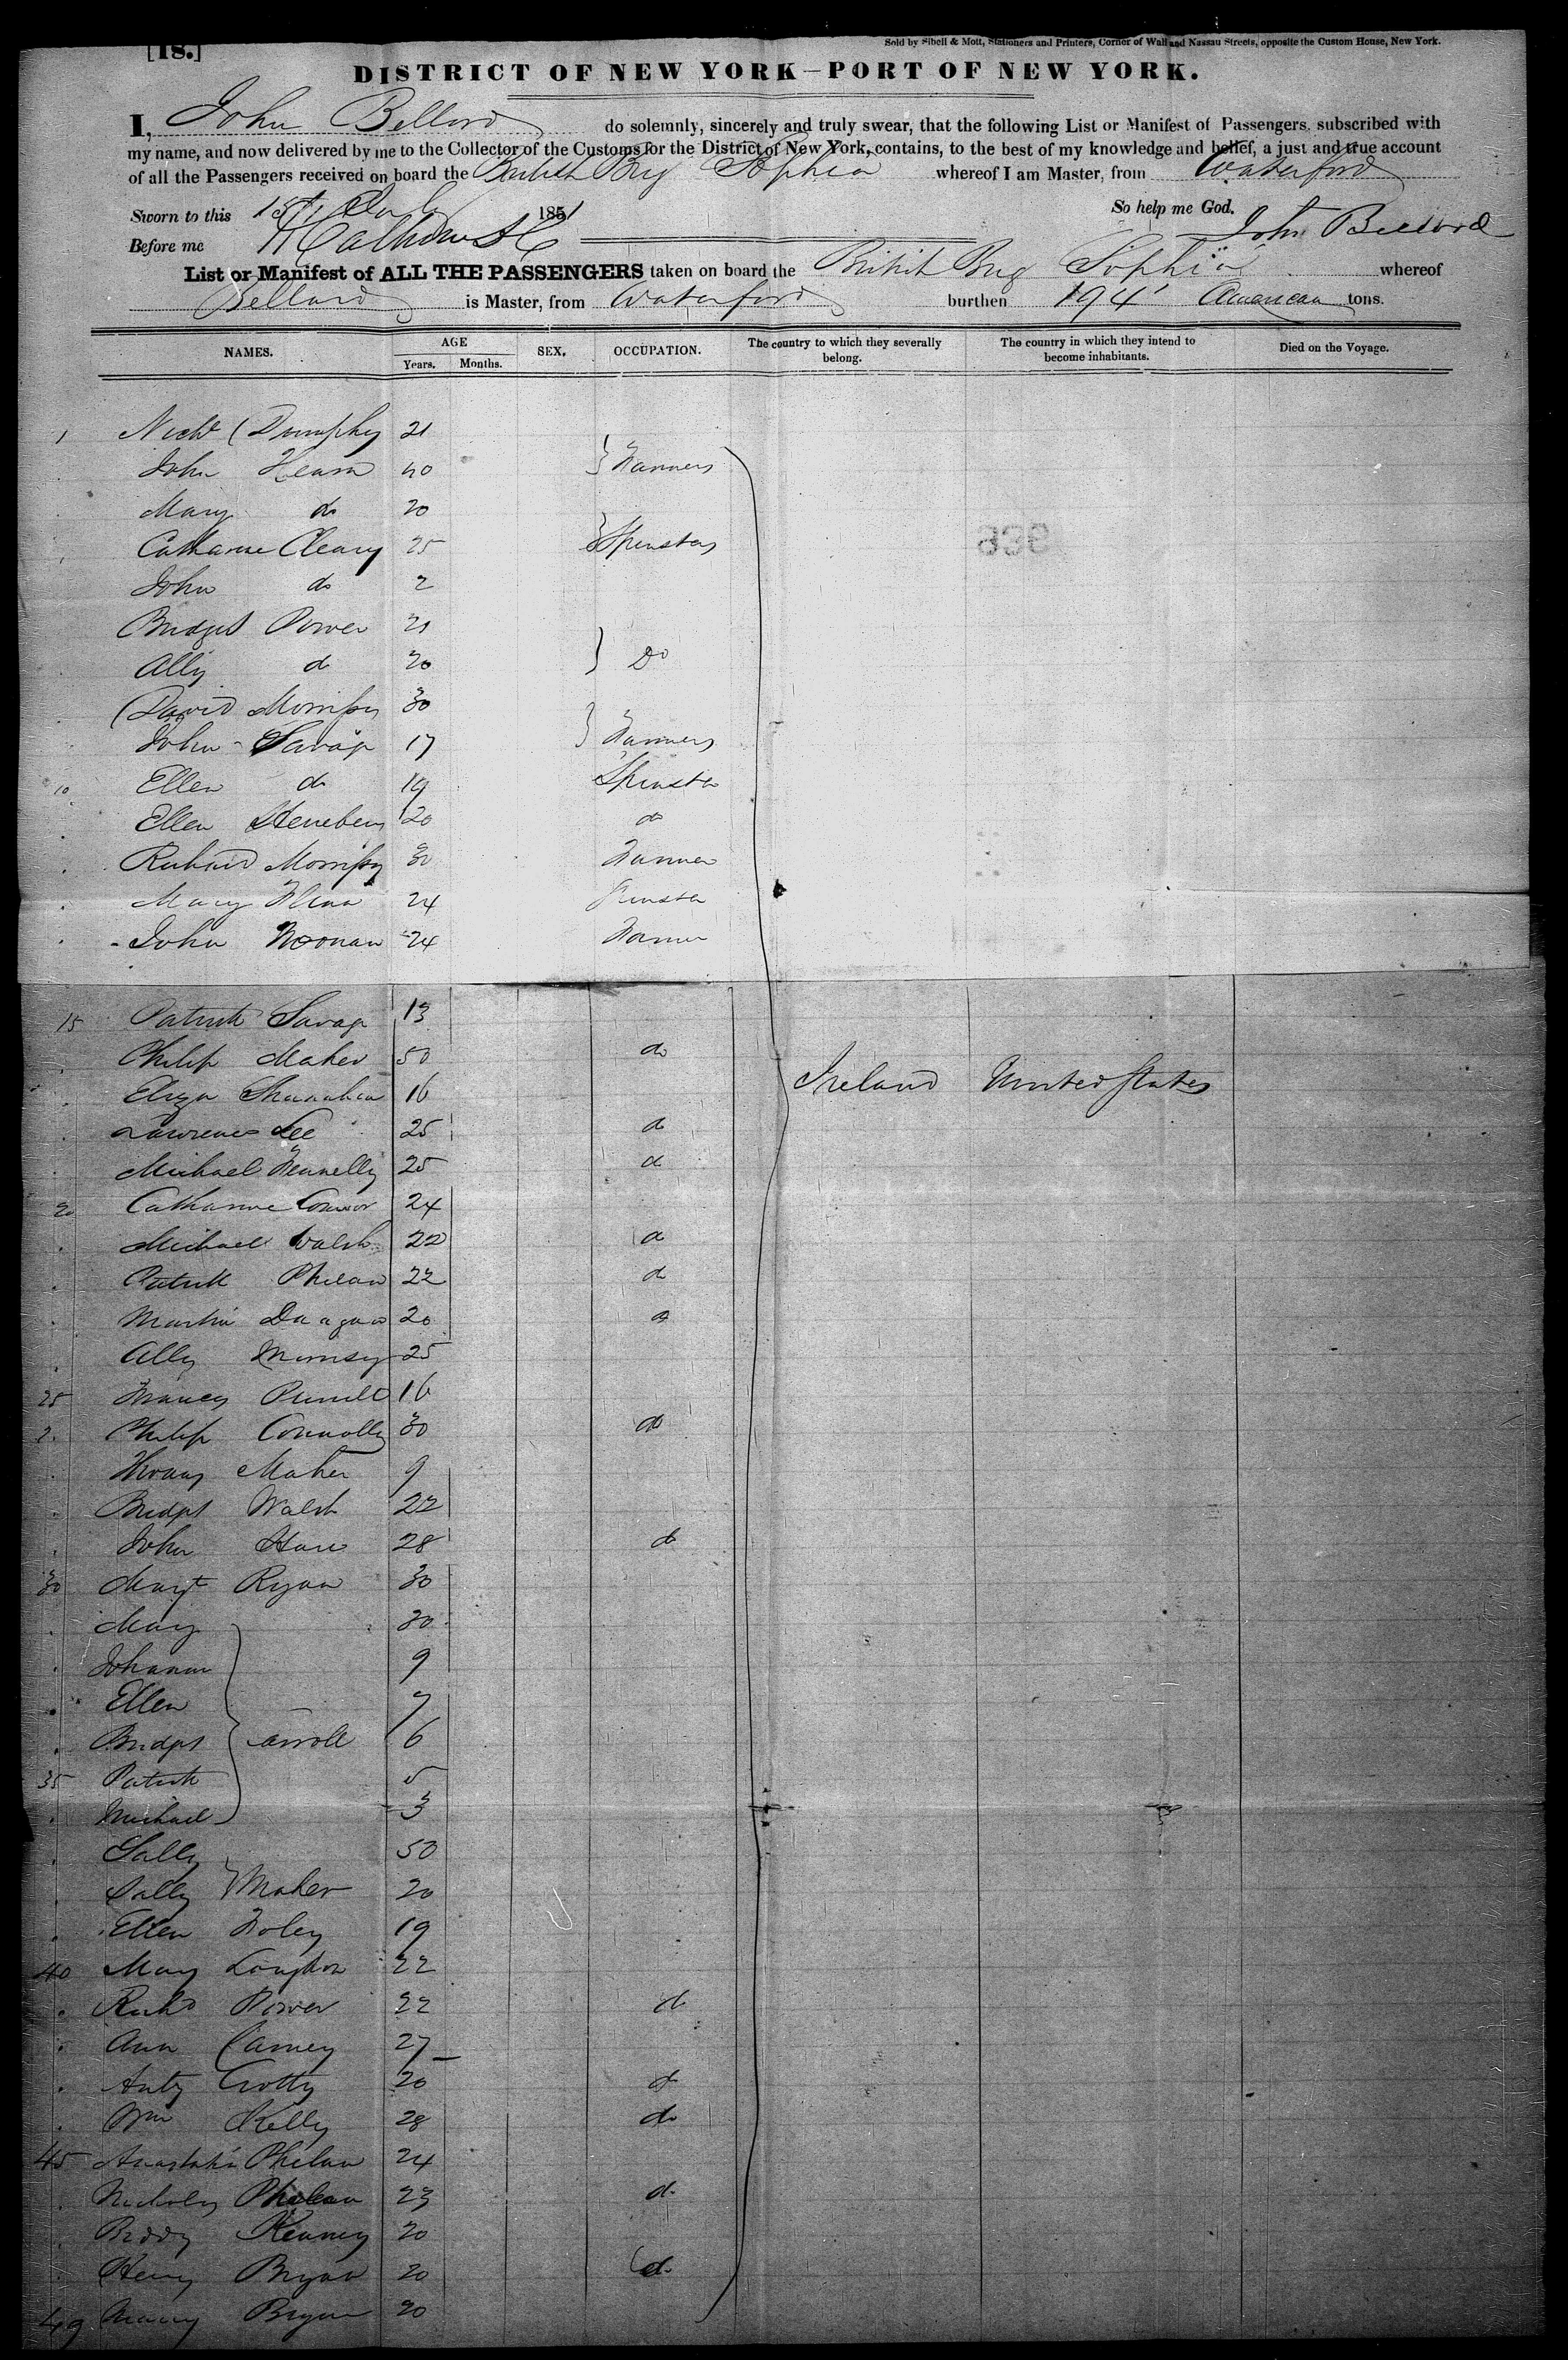 [18.]
Sold by Sibell & Mott, Stationers and Printers, Corner of Wall and Nassau Streets, opposite the Custom House, New York.
DISTRICT OF NEW YORK—PORT OF NEW YORK.
I, John Bellord do solemnly, sincerely and truly swear, that the following List or Manifest of Passengers, subscribed with
my name, and now delivered by me to the Collector of the Customs for the District of New York, contains, to the best of my knowledge and belief, a just and true account
of all the Passengers received on board the British Brig Sophia whereof I am Master, from Waterford
Sworn to this 15th 1851 So help me God.
Before me John Bellord
List or Manifest of ALL THE PASSENGERS taken on board the British Brig Sophia whereof
Bellord is Master, from Waterford burthen 194 American tons.
NAMES. AGE Years. Months. SEX. OCCUPATION. The country to which they severally belong. The country in which they intend to become inhabitants. Died on the Voyage.
1 Nichs Dumphy 21
John Hearn 40 } Farmers
Mary do 20
Catharine Cleary 25 } Spinsters
John do 2
Bridget Power 21
Ally do 20 } Do
David Morrissy 30
John Savage 17 } Farmers
10 Ellen do 19 Spinster
Ellen Henebery 20 do
Richard Morrissy 30 Farmer
Mary Flinn 24 Spinster
John Noonan 24 Farmer
936
15 Patrick Savage 13
Philip Maher 50 do
Eliza Shanahan 16 Ireland United States
Lawrence Lee 25 do
Michael Fennelly 25 do
20 Catharine Connor 24
Michael Walsh 22 do
Patrick Phelan 22 do
Martin 20 do
Ally Morrisey 25
25 Frances Purcell 16
2. Philip Connolly 30 do
Thomas Maher 9
Bridget Walsh 22
John Hare 28 do
30 Margt Ryan 30
Mary 30
Johanna 9
Ellen 7
Bridget } Carroll 6
35 Patrick 5
Michael 3
Sally 50
Sally } Maher 20
Ellen Foley 19
40 Mary Langton 22
Richd Power 22 do
Ann Carney 27
Anty Crotty 20 do
Wm Kelly 28 do
45 Anastatia Phelan 24
Nicholas Phelan 23 do
Biddy Kenney 20
Henry Bryan 20 do
49 Nancy Bryan 20